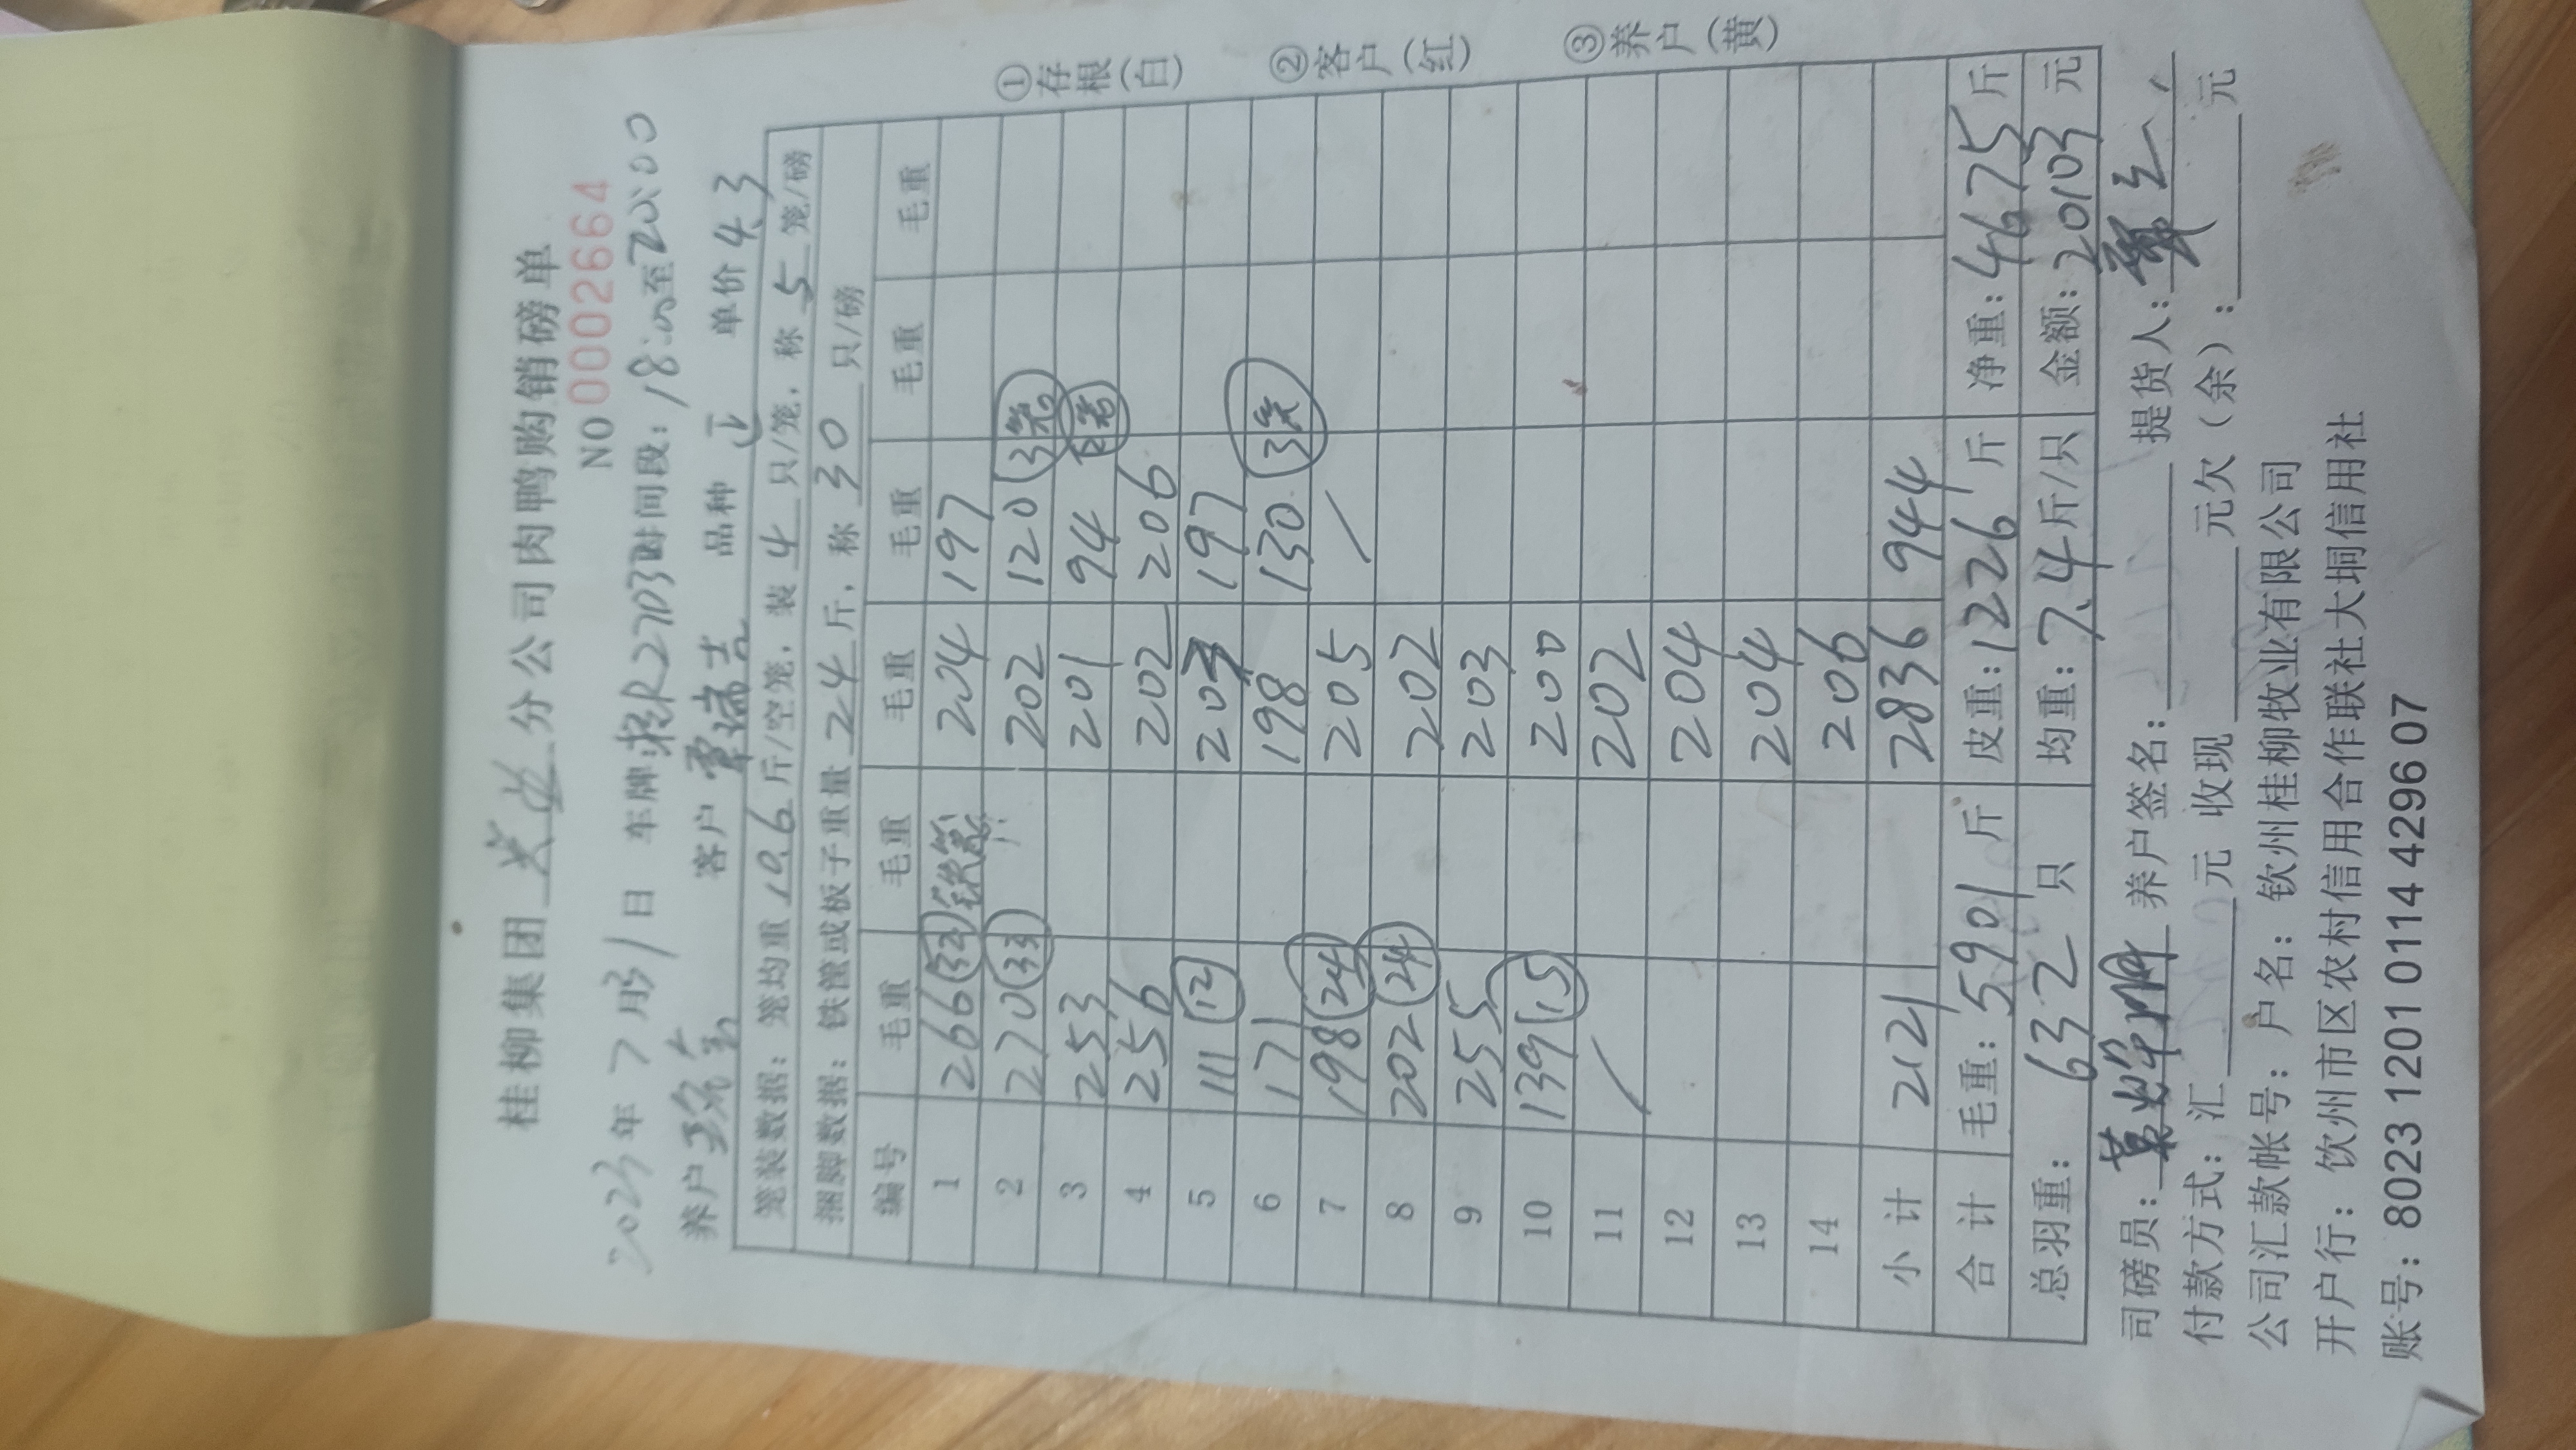 桂柳集团 分公司肉鸭购销磅单
NO 0002664
2023年7月31日 车牌:桂R2703 时间段:18:00至20:00
养户 客户 覃瑞吉 品种 正 单价 4.3
笼装数据:笼均重 19.6 斤/空笼,装 4 只/笼,称 5 笼/磅
捆脚数据:铁管或板子重量 24 斤,称 30 只/磅
编号 毛重 毛重 毛重 毛重 毛重 毛重
1 266 (32) 铁笼 204 197
2 270 (33) 202 120 (3笼)
3 253 201 94
4 256 202 206
5 111 (12) 203 197
6 171 198 130 (3笼)
7 198 (24) 205
8 202 (24) 202
9 255 203
10 139 (15) 200
11 202
12 204
13 204
14 206
小计 2121 2836 944
合计 毛重:5901斤 皮重:1226斤 净重:4675斤
总羽重:632只 均重:7.4斤/只 金额:20103元
司磅员: 养户签名: 提货人:
付款方式:汇 元 收现 元欠(余): 元
公司汇款帐号:户名:钦州桂柳牧业有限公司
开户行:钦州市区农村信用合作联社大垌信用社
账号:8023 1201 0114 4296 07
①存根(白) ②客户(红) ③养户(黄)